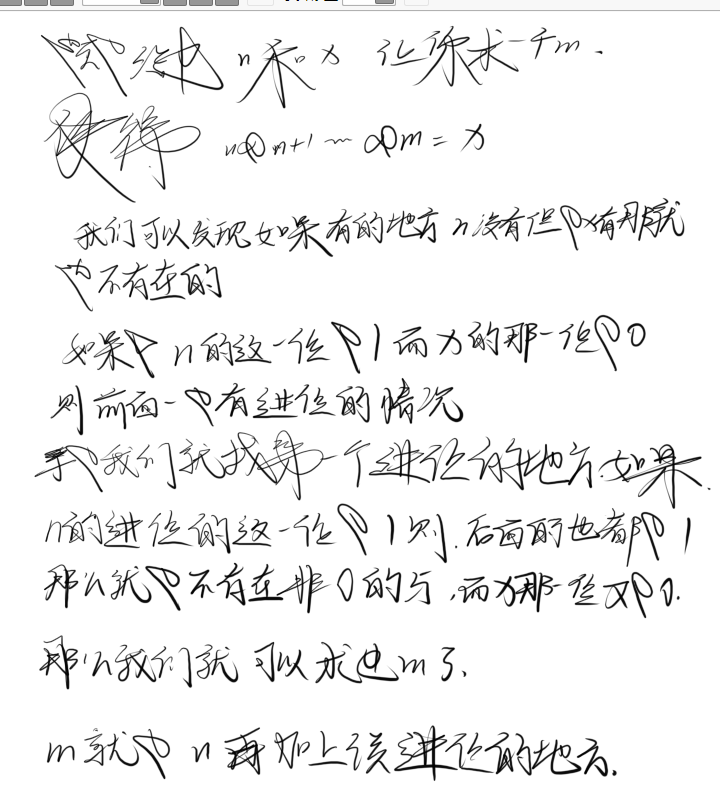 即给出 n 和 x 让你求一个 m.
使得 n & n+1 … & m = x
我们可以发现如果有的地方 n 没有但是 x 有那就
是不存在的
如果是 n 的这一位是 1 而 x 的那一位是 0
则前面一定有进位的情况
我们就找第一个进位的地方.如果
n 的进位的这一位是 1 则.后面的也都是 1
那么就是不存在非 0 的
而 x 那一位又是 0.
那么我们就可以求出 m 了.
m 就是 n 再加上该进位的地方.